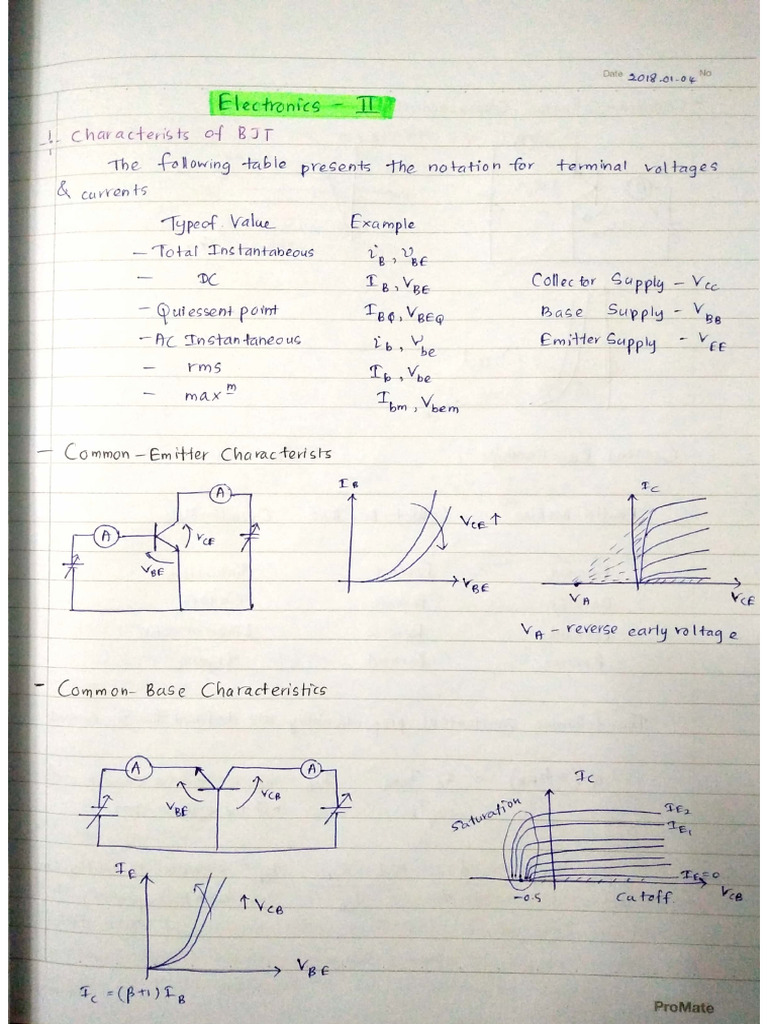 Date 2018-01-04 No
Electronics - II
1. Characterists of BJT
The following table presents the notation for terminal voltages
& currents
Type of Value Example
- Total Instantabeous i_B, v_BE
- DC I_B, V_BE Collector Supply - V_CC
- Quiessent point I_BQ, V_BEQ Base Supply - V_BB
- AC Instantaneous i_b, v_be Emitter Supply - V_EE
- rms I_b, V_be
- max^m I_bm, V_bem
- Common-Emitter Characterists
A A V_BE V_CE
I_B V_CE ↑ V_BE
I_C V_A V_CE
V_A - reverse early voltage
- Common-Base Characteristics
A A V_BE V_CB
I_C Saturation I_E2 I_E1 I_E=0 -0.5 Cutoff V_CB
I_E ↑ V_CB V_BE
I_C = (β+1) I_B
ProMate